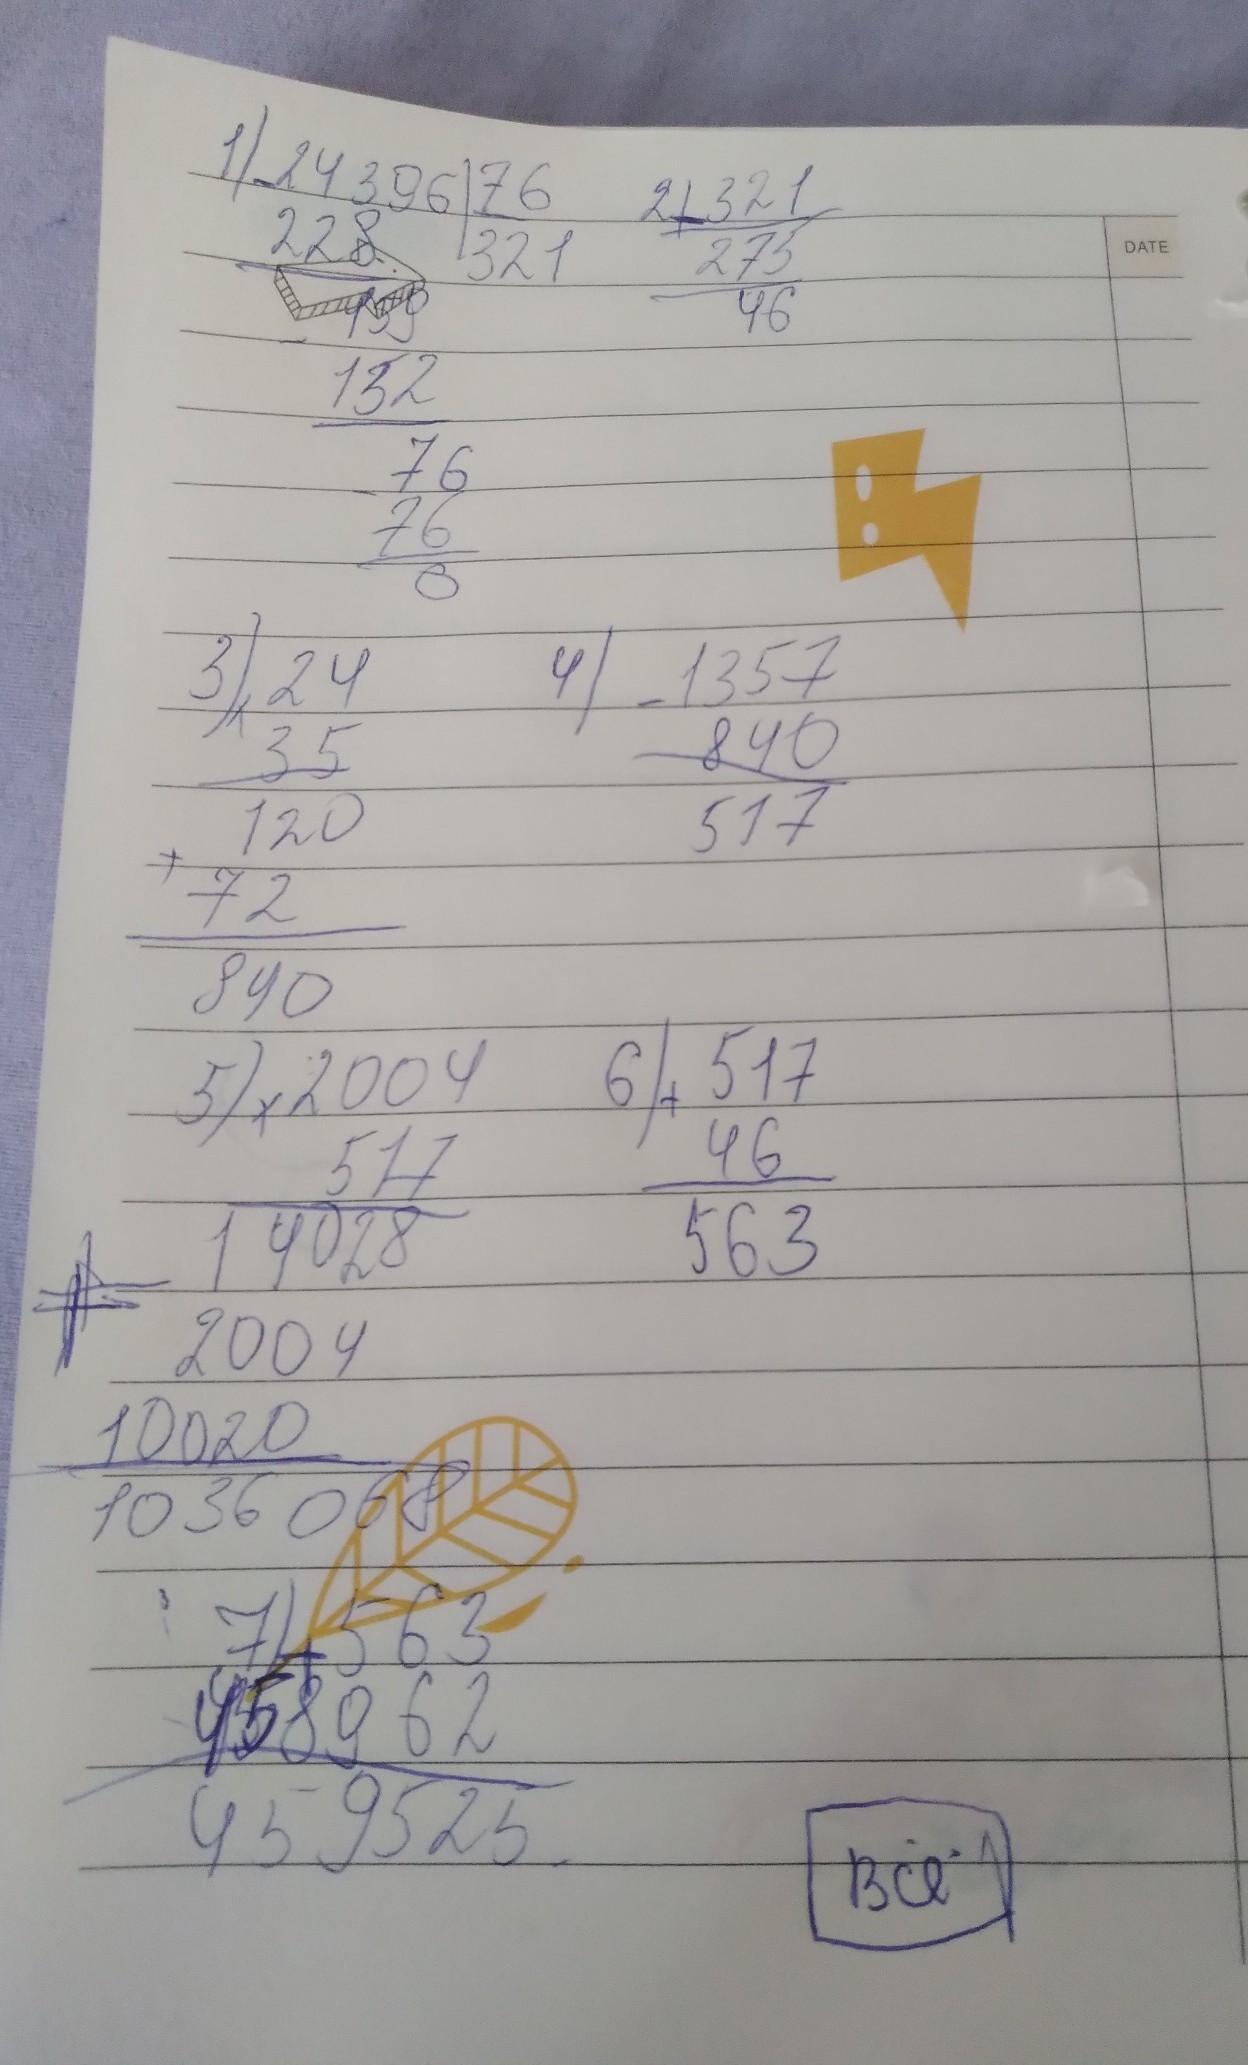 1) - 24396 | 76
228 | 321
159
- 152
76
- 76
0
2) - 321
275
46
DATE
3) x 24
35
120
+ 72
840
4) - 1357
840
517
5) x 2004
517
14028
+ 2004
10020
1036068
6) + 517
46
563
7) + 563
458962
459525.
Всё